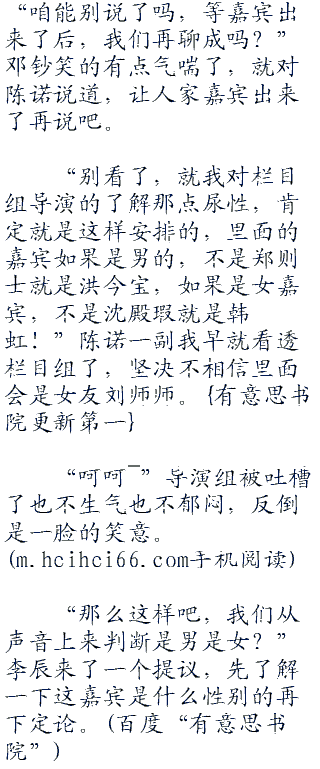 “咱能别说了吗，等嘉宾出
来了后，我们再聊成吗？”
邓钞笑的有点气喘了，就对
陈诺说道，让人家嘉宾出来
了再说吧。
“别看了，就我对栏目
组导演的了解那点尿性，肯
定就是这样安排的，里面的
嘉宾如果是男的，不是郑则
士就是洪今宝，如果是女嘉
宾，不是沈殿瑕就是韩
虹！”陈诺一副我早就看透
栏目组了，坚决不相信里面
会是女友刘师师。{有意思书
院更新第一}
“呵呵~”导演组被吐槽
了也不生气也不郁闷，反倒
是一脸的笑意。
(m.hcihci66.com手机阅读)
“那么这样吧，我们从
声音上来判断是男是女？”
李辰来了一个提议，先了解
一下这嘉宾是什么性别的再
下定论。(百度“有意思书
院”)